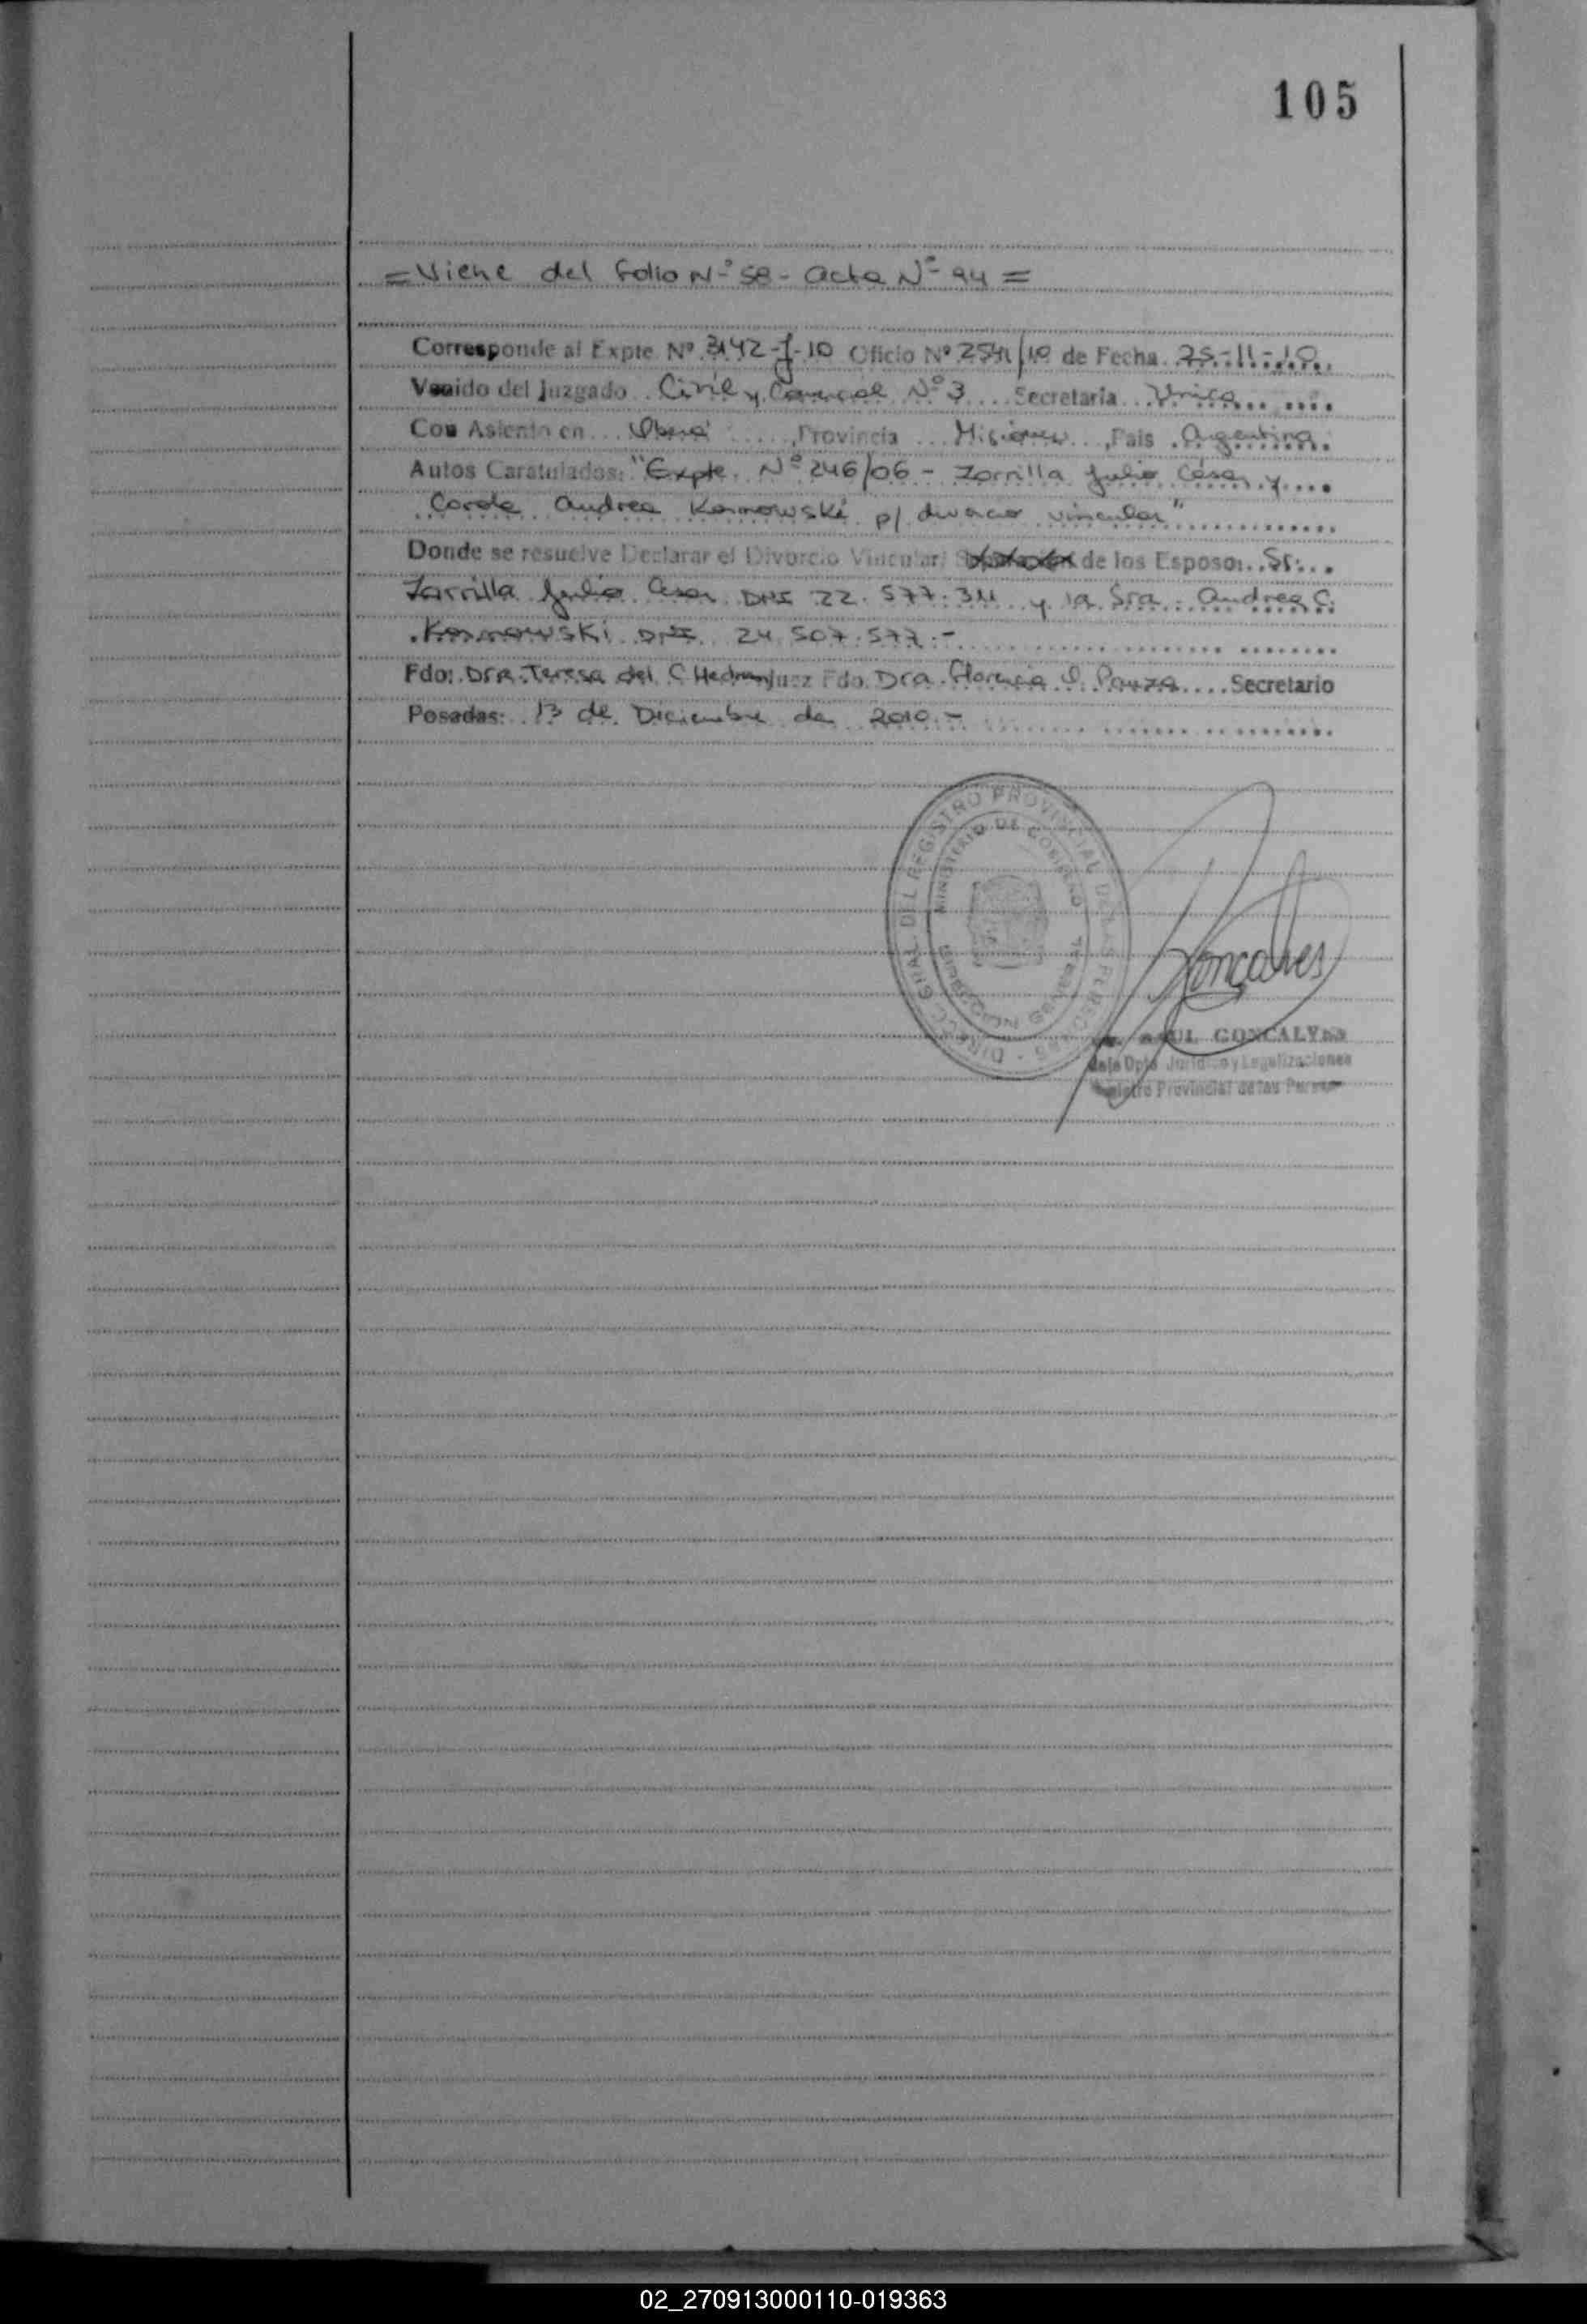 105
= Viene del folio Nº 58 - acta Nº 94 =
Corresponde al Expte Nº 3142-J-10 Oficio Nº 2541/10 de Fecha 25-11-10
Venido del Juzgado Civil y Comercial Nº 3 Secretaria Unica
Con Asiento en Oberá, Provincia Misiones, Pais Argentina
Autos Caratulados: "Expte. Nº 246/06 - Zorrilla Julio César y
Andrea Kornowski p/ divorcio vincular"
Donde se resuelve Declarar el Divorcio Vincular/ de los Esposo: Sr:
Zorrilla Julio Cesar DNI 22.577.311 y la Sra. Andrea C.
Kornowski DNI 24.507.577.-
Fdo: Dra. Teresa del C. Juez Fdo. Dra. Florencia Secretario
Posadas: 13 de Diciembre de 2010.-
DIRECC. GRAL. DEL REGISTRO PROVINCIAL DE LAS PERSONAS
MINISTERIO DE GOBIERNO
MISIONES
Goncalves
RAUL GONCALVES
Jefe Dpto Juridico y Legalizaciones
Registro Provincial de las Personas
02_270913000110-019363